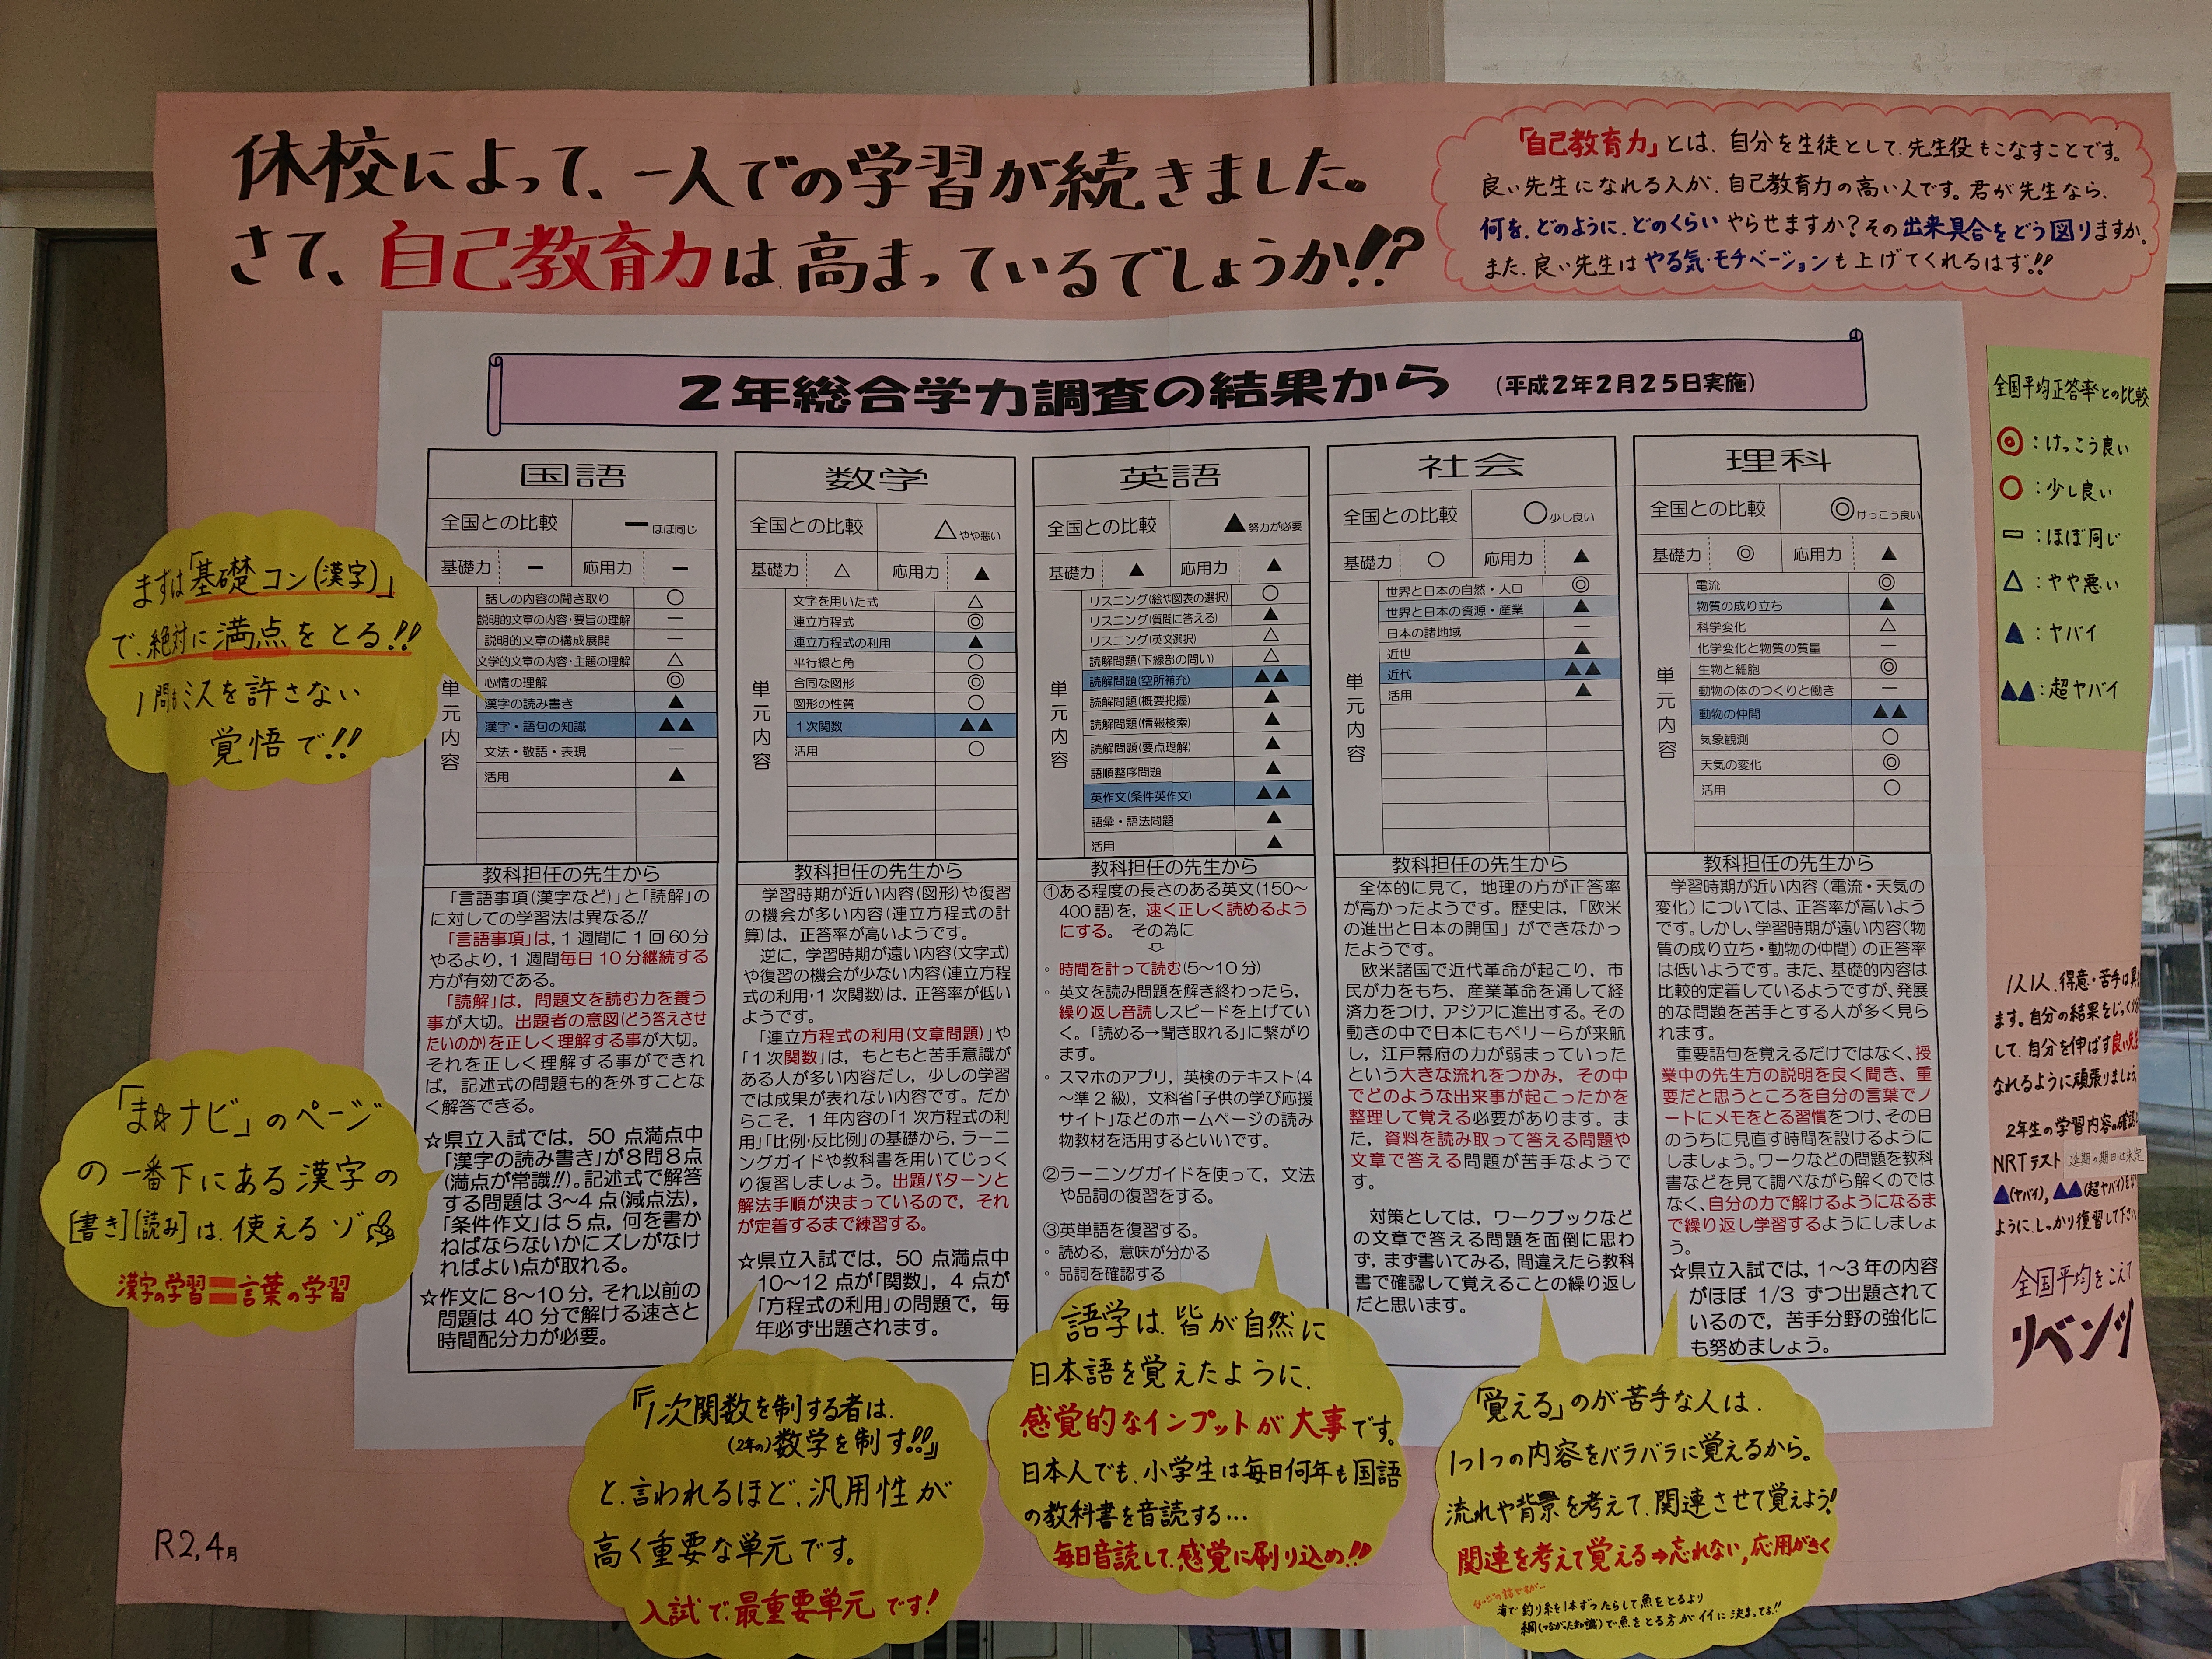 休校によって、一人での学習が続きました。
さて、自己教育力は高まっているでしょうか!!?
「自己教育力」とは、自分を生徒として、先生役もこなすことです。
良い先生になれる人が、自己教育力の高い人です。君が先生なら、
何を、どのように、どのくらいやらせますか?その出来具合をどう図りますか。
また、良い先生はやる気・モチベーションも上げてくれるはず!!
2年総合学力調査の結果から (平成2年2月25日実施)
全国平均正答率との比較
◎:けっこう良い
○:少し良い
ー:ほぼ同じ
△:やや悪い
▲:ヤバイ
▲▲:超ヤバイ
国語
全国との比較 ー ほぼ同じ
基礎力 ー 応用力 ー
単元内容
話しの内容の聞き取り ○
説明的文章の内容・要旨の理解 ー
説明的文章の構成展開 ー
文学的文章の内容・主題の理解 △
心情の理解 ◎
漢字の読み書き ▲
漢字・語句の知識 ▲▲
文法・敬語・表現 ー
活用 ▲
教科担任の先生から
「言語事項(漢字など)」と「読解」の
に対しての学習法は異なる!!
「言語事項」は、1週間に1回60分
やるより、1週間毎日10分継続する
方が有効である。
「読解」は、問題文を読む力を養う
事が大切。出題者の意図(どう答えさせ
たいのか)を正しく理解する事が大切。
それを正しく理解する事ができれ
ば、記述式の問題も的を外すことな
く解答できる。
☆県立入試では、50点満点中
「漢字の読み書き」が8問8点
(満点が常識!!)。記述式で解答
する問題は3~4点(減点法)、
「条件作文」は5点、何を書か
ねばならないかにズレがなけ
ればよい点が取れる。
☆作文に8~10分、それ以前の
問題は40分で解ける速さと
時間配分力が必要。
数学
全国との比較 △ やや悪い
基礎力 △ 応用力 ▲
単元内容
文字を用いた式 △
連立方程式 ◎
連立方程式の利用 ▲
平行線と角 ○
合同な図形 ◎
図形の性質 ○
1次関数 ▲▲
活用 ○
教科担任の先生から
学習時期が近い内容(図形)や復習
の機会が多い内容(連立方程式の計
算)は、正答率が高いようです。
逆に、学習時期が遠い内容(文字式)
や復習の機会が少ない内容(連立方程
式の利用・1次関数)は、正答率が低い
ようです。
「連立方程式の利用(文章問題)」や
「1次関数」は、もともと苦手意識が
ある人が多い内容だし、少しの学習
では成果が表れない内容です。だか
らこそ、1年内容の「1次方程式の利
用」「比例・反比例」の基礎から、ラーニ
ングガイドや教科書を用いてじっく
り復習しましょう。出題パターンと
解法手順が決まっているので、それ
が定着するまで練習する。
☆県立入試では、50点満点中
10~12点が「関数」、4点が
「方程式の利用」の問題で、毎
年必ず出題されます。
英語
全国との比較 ▲ 努力が必要
基礎力 ▲ 応用力 ▲
単元内容
リスニング(絵や図表の選択) ○
リスニング(質問に答える) ▲
リスニング(英文選択) △
読解問題(下線部の問い) △
読解問題(空所補充) ▲▲
読解問題(概要把握) ▲
読解問題(情報検索) ▲
読解問題(要点理解) ▲
語順整序問題 ▲
英作文(条件英作文) ▲▲
語彙・語法問題 ▲
活用 ▲
教科担任の先生から
①ある程度の長さのある英文(150~
400語)を、速く正しく読めるよう
にする。 その為に
⇩
◦ 時間を計って読む(5~10分)
◦ 英文を読み問題を解き終わったら、
繰り返し音読しスピードを上げてい
く。「読める→聞き取れる」に繋がり
ます。
◦ スマホのアプリ、英検のテキスト(4
~準2級)、文科省「子供の学び応援
サイト」などのホームページの読み
物教材を活用するといいです。
②ラーニングガイドを使って、文法
や品詞の復習をする。
③英単語を復習する。
◦ 読める、意味が分かる
◦ 品詞を確認する
社会
全国との比較 ○ 少し良い
基礎力 ○ 応用力 ▲
単元内容
世界と日本の自然・人口 ◎
世界と日本の資源・産業 ▲
日本の諸地域 ー
近世 ▲
近代 ▲▲
活用 ▲
教科担任の先生から
全体的に見て、地理の方が正答率
が高かったようです。歴史は、「欧米
の進出と日本の開国」ができなかっ
たようです。
欧米諸国で近代革命が起こり、市
民が力をもち、産業革命を通して経
済力をつけ、アジアに進出する。その
動きの中で日本にもペリーらが来航
し、江戸幕府の力が弱まっていった
という大きな流れをつかみ、その中
でどのような出来事が起こったかを
整理して覚える必要があります。ま
た、資料を読み取って答える問題や
文章で答える問題が苦手なようで
す。
対策としては、ワークブックなど
の文章で答える問題を面倒に思わ
ず、まず書いてみる、間違えたら教科
書で確認して覚えることの繰り返し
だと思います。
理科
全国との比較 ◎ けっこう良い
基礎力 ◎ 応用力 ▲
単元内容
電流 ◎
物質の成り立ち ▲
科学変化 △
化学変化と物質の質量 ー
生物と細胞 ◎
動物の体のつくりと働き ー
動物の仲間 ▲▲
気象観測 ○
天気の変化 ◎
活用 ○
教科担任の先生から
学習時期が近い内容(電流・天気の
変化)については、正答率が高いよう
です。しかし、学習時期が遠い内容(物
質の成り立ち・動物の仲間)の正答率
は低いようです。また、基礎的内容は
比較的定着しているようですが、発展
的な問題を苦手とする人が多く見ら
れます。
重要語句を覚えるだけではなく、授
業中の先生方の説明を良く聞き、重
要だと思うところを自分の言葉でノ
ートにメモをとる習慣をつけ、その日
のうちに見直す時間を設けるように
しましょう。ワークなどの問題を教科
書などを見て調べながら解くのでは
なく、自分の力で解けるようになるま
で繰り返し学習するようにしましょ
う。
☆県立入試では、1~3年の内容
がほぼ1/3ずつ出題されて
いるので、苦手分野の強化に
も努めましょう。
まずは「基礎コン(漢字)」
で、絶対に満点をとる!!
1問もミスを許さない
覚悟で!!
「ま☆ナビ」のページ
の一番下にある漢字の
[書き][読み]は、使えるゾ
漢字の学習=言葉の学習
『1次関数を制する者は、
(2年の)数学を制す!!』
と、言われるほど、汎用性が
高く重要な単元です。
入試で最重要単元です!
語学は、皆が自然に
日本語を覚えたように、
感覚的なインプットが大事です。
日本人でも、小学生は毎日何年も国語
の教科書を音読する…
毎日音読して、感覚に刷り込め!!
「覚える」のが苦手な人は、
1つ1つの内容をバラバラに覚えるから。
流れや背景を考えて、関連させて覚えよう!
関連を考えて覚える⇒忘れない、応用がきく
海で釣り糸を1本ずつたらして魚をとるより
網(つながった知識)で魚をとる方がイイに決まってる!!
1人1人、得意・苦手は異
ます。自分の結果をじっく
して、自分を伸ばす良い先生
なれるように頑張りましょう
2年生の学習内容の確認
NRTテスト 延期の期日は未定
▲(ヤバイ)、▲▲(超ヤバイ)を
ように、しっかり復習して下さい
全国平均をこえて
リベンジ
R2,4月